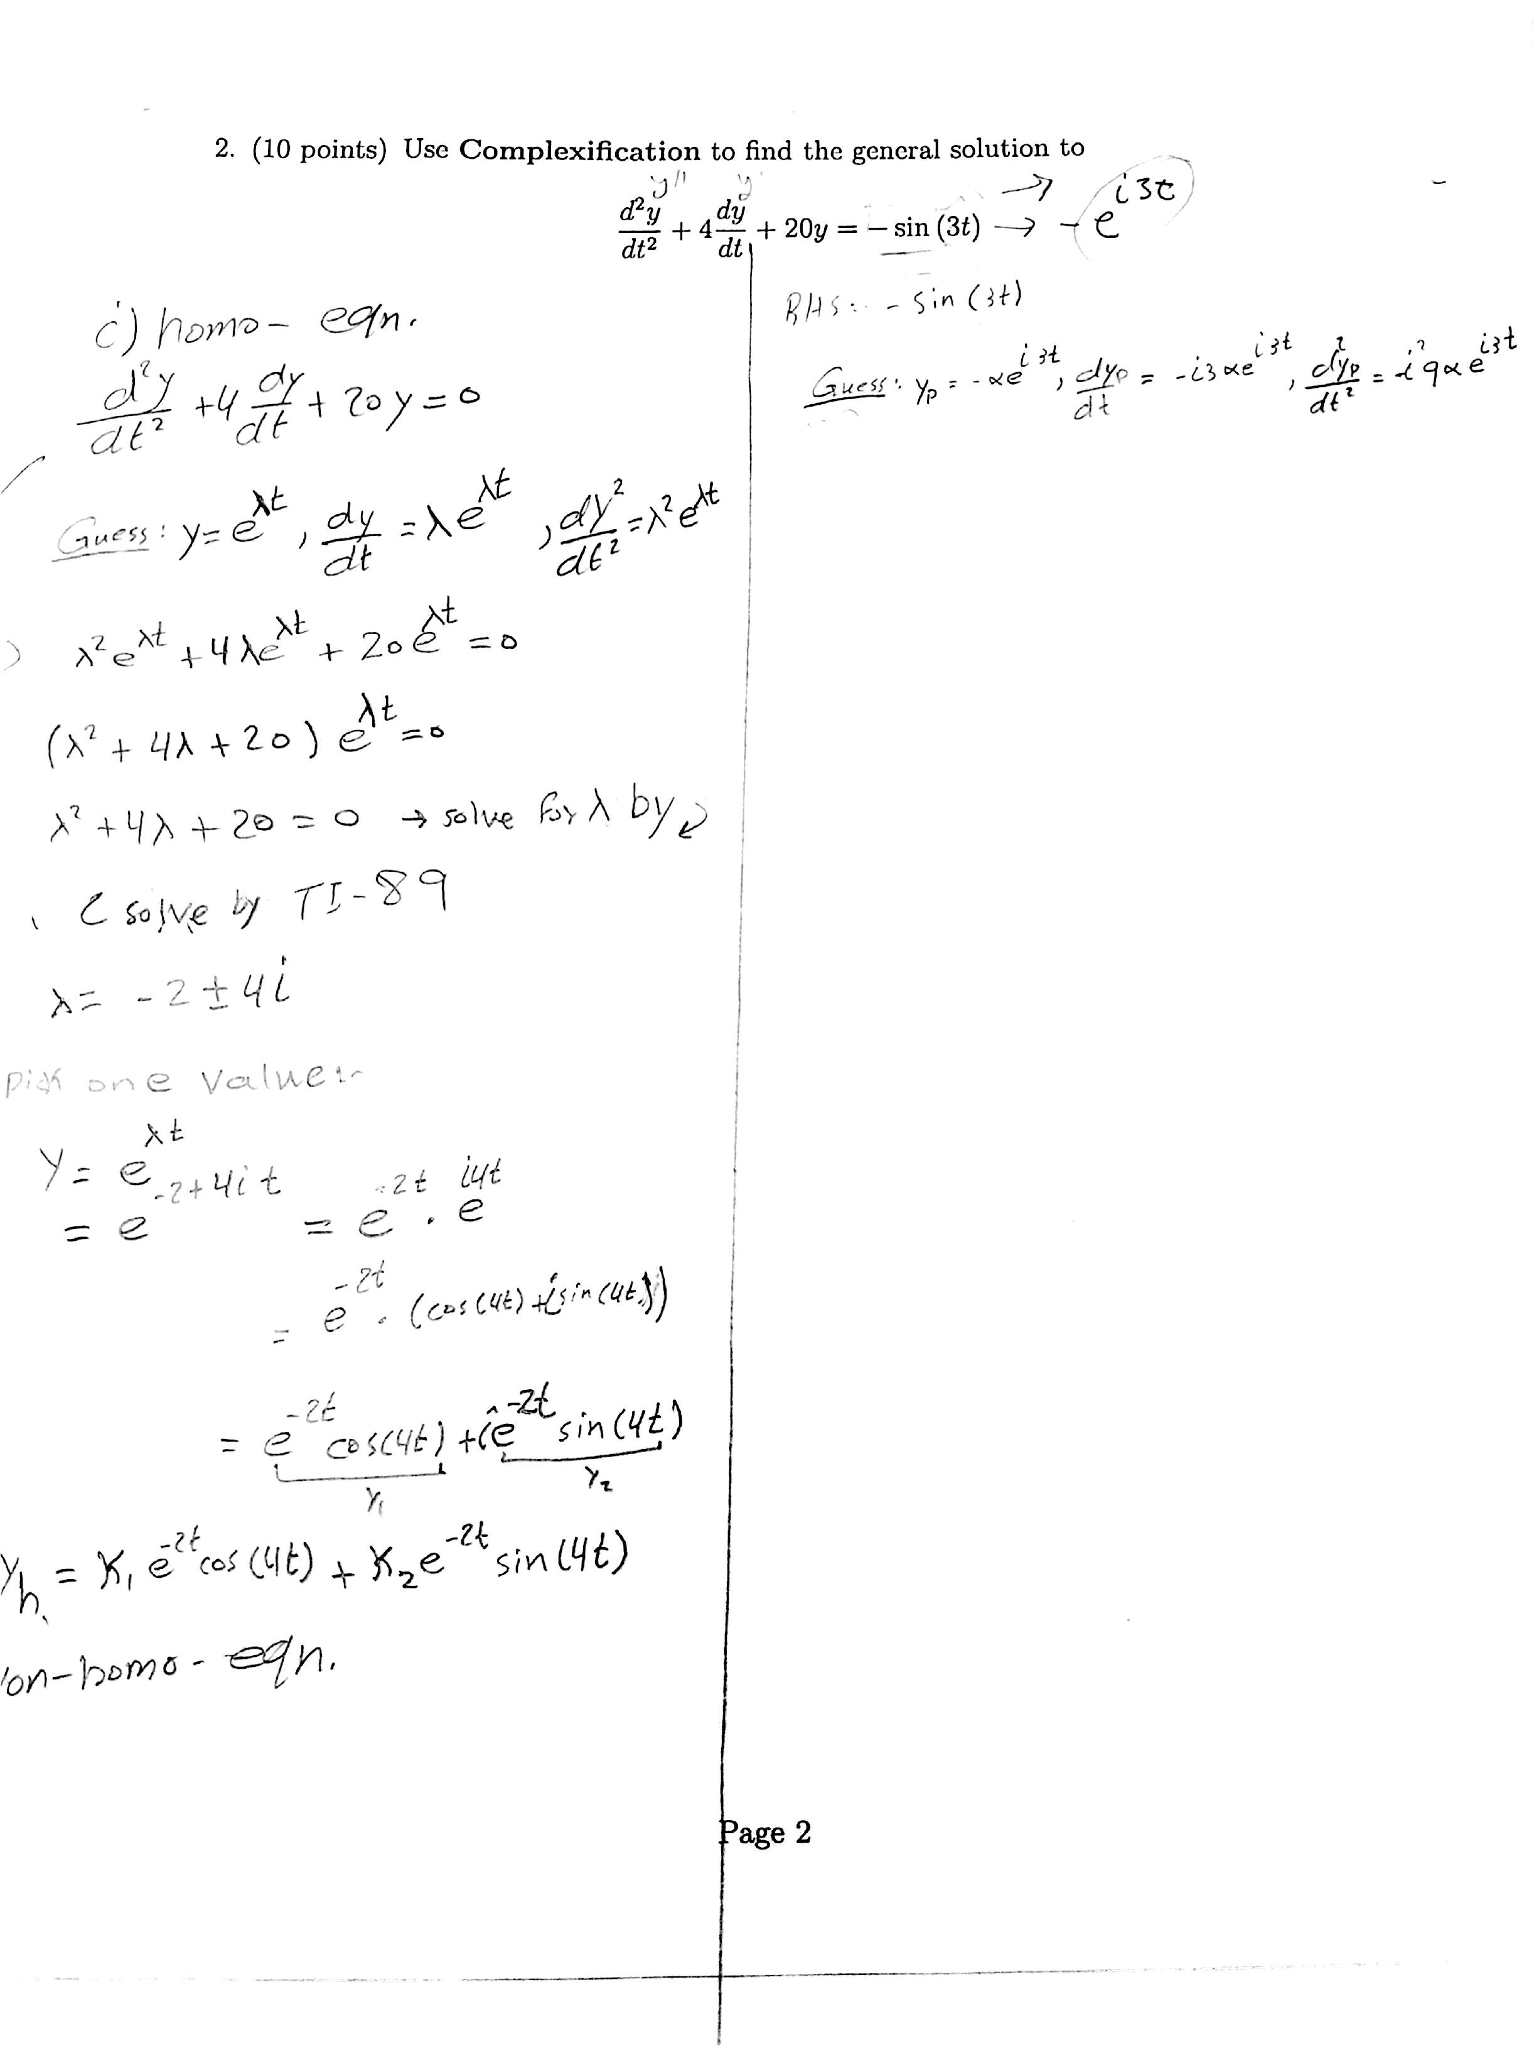 2. (10 points) Use Complexification to find the general solution to
y'' y'
d²y/dt² + 4 dy/dt + 20y = − sin (3t) → - e^{i3t}
i) homo- eqn.
d²y/dt² +4 dy/dt + 20y = 0
Guess: y = e^{λt}, dy/dt = λe^{λt}, dy²/dt² = λ²e^{λt}
λ²e^{λt} + 4λe^{λt} + 20e^{λt} = 0
(λ² + 4λ + 20) e^{λt} = 0
λ² + 4λ + 20 = 0 → solve for λ by
solve by TI-89
λ = -2 ± 4i
pick one value:-
Y = e^{λt}
= e^{-2+4it} = e^{-2t} . e^{i4t}
= e^{-2t} . (cos(4t) + i sin(4t))
= e^{-2t} cos(4t) + i e^{-2t} sin(4t)
Y₁ Y₂
Y_h = K₁ e^{-2t} cos(4t) + K₂ e^{-2t} sin(4t)
on-homo- eqn.
RHS: - sin (3t)
Guess: y_p = -αe^{i3t}, dy_p/dt = -i3αe^{i3t}, d²y_p/dt² = -i²9αe^{i3t}
Page 2